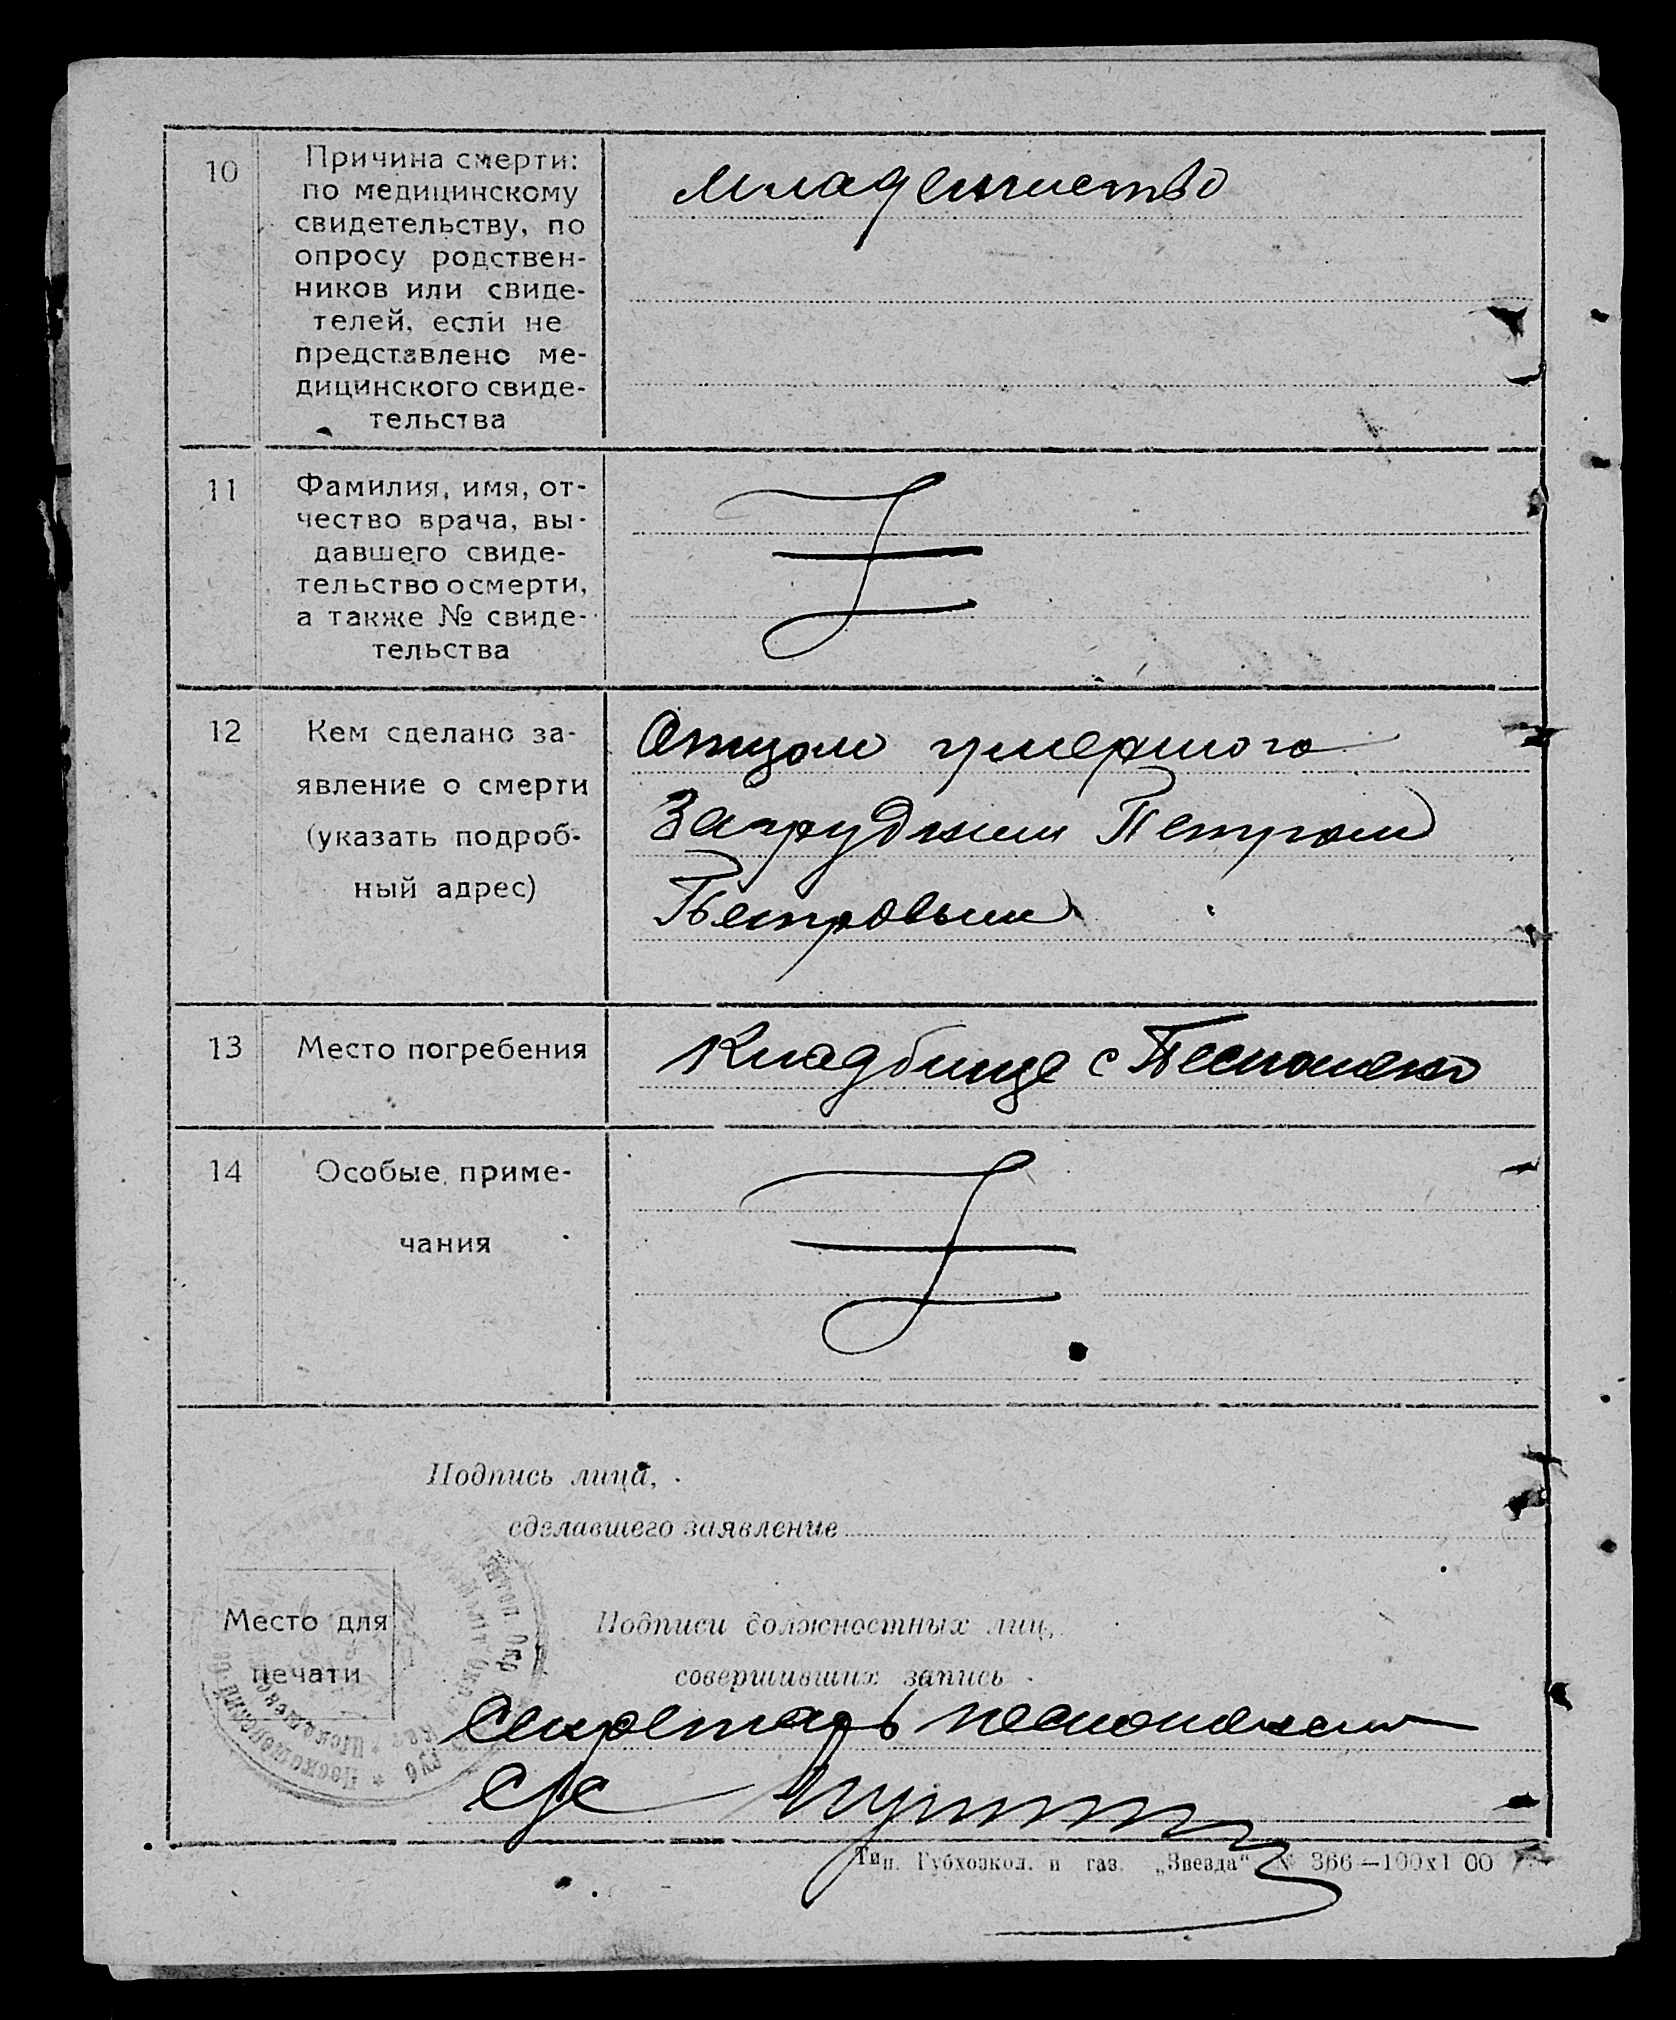 10
Причина смерти:
по медицинскому
свидетельству, по
опросу родствен-
ников или свиде-
телей, если не
представлено ме-
дицинского свиде-
тельства
младенчество
11
Фамилия, имя, от-
чество врача, вы-
давшего свиде-
тельство о смерти,
а также № свиде-
тельства
12
Кем сделано за-
явление о смерти
(указать подроб-
ный адрес)
Отцом умершого
Загрудним Петром
Петровым
13
Место погребения
Кладбище с
14
Особые приме-
чания
Подпись лица,
сделавшего заявление
Место для
печати
Подписи должностных лиц,
совершивших запись
Секретарь
с/с
Тип. Губхозкол. и газ. „Звезда“ № 366—100x1 00